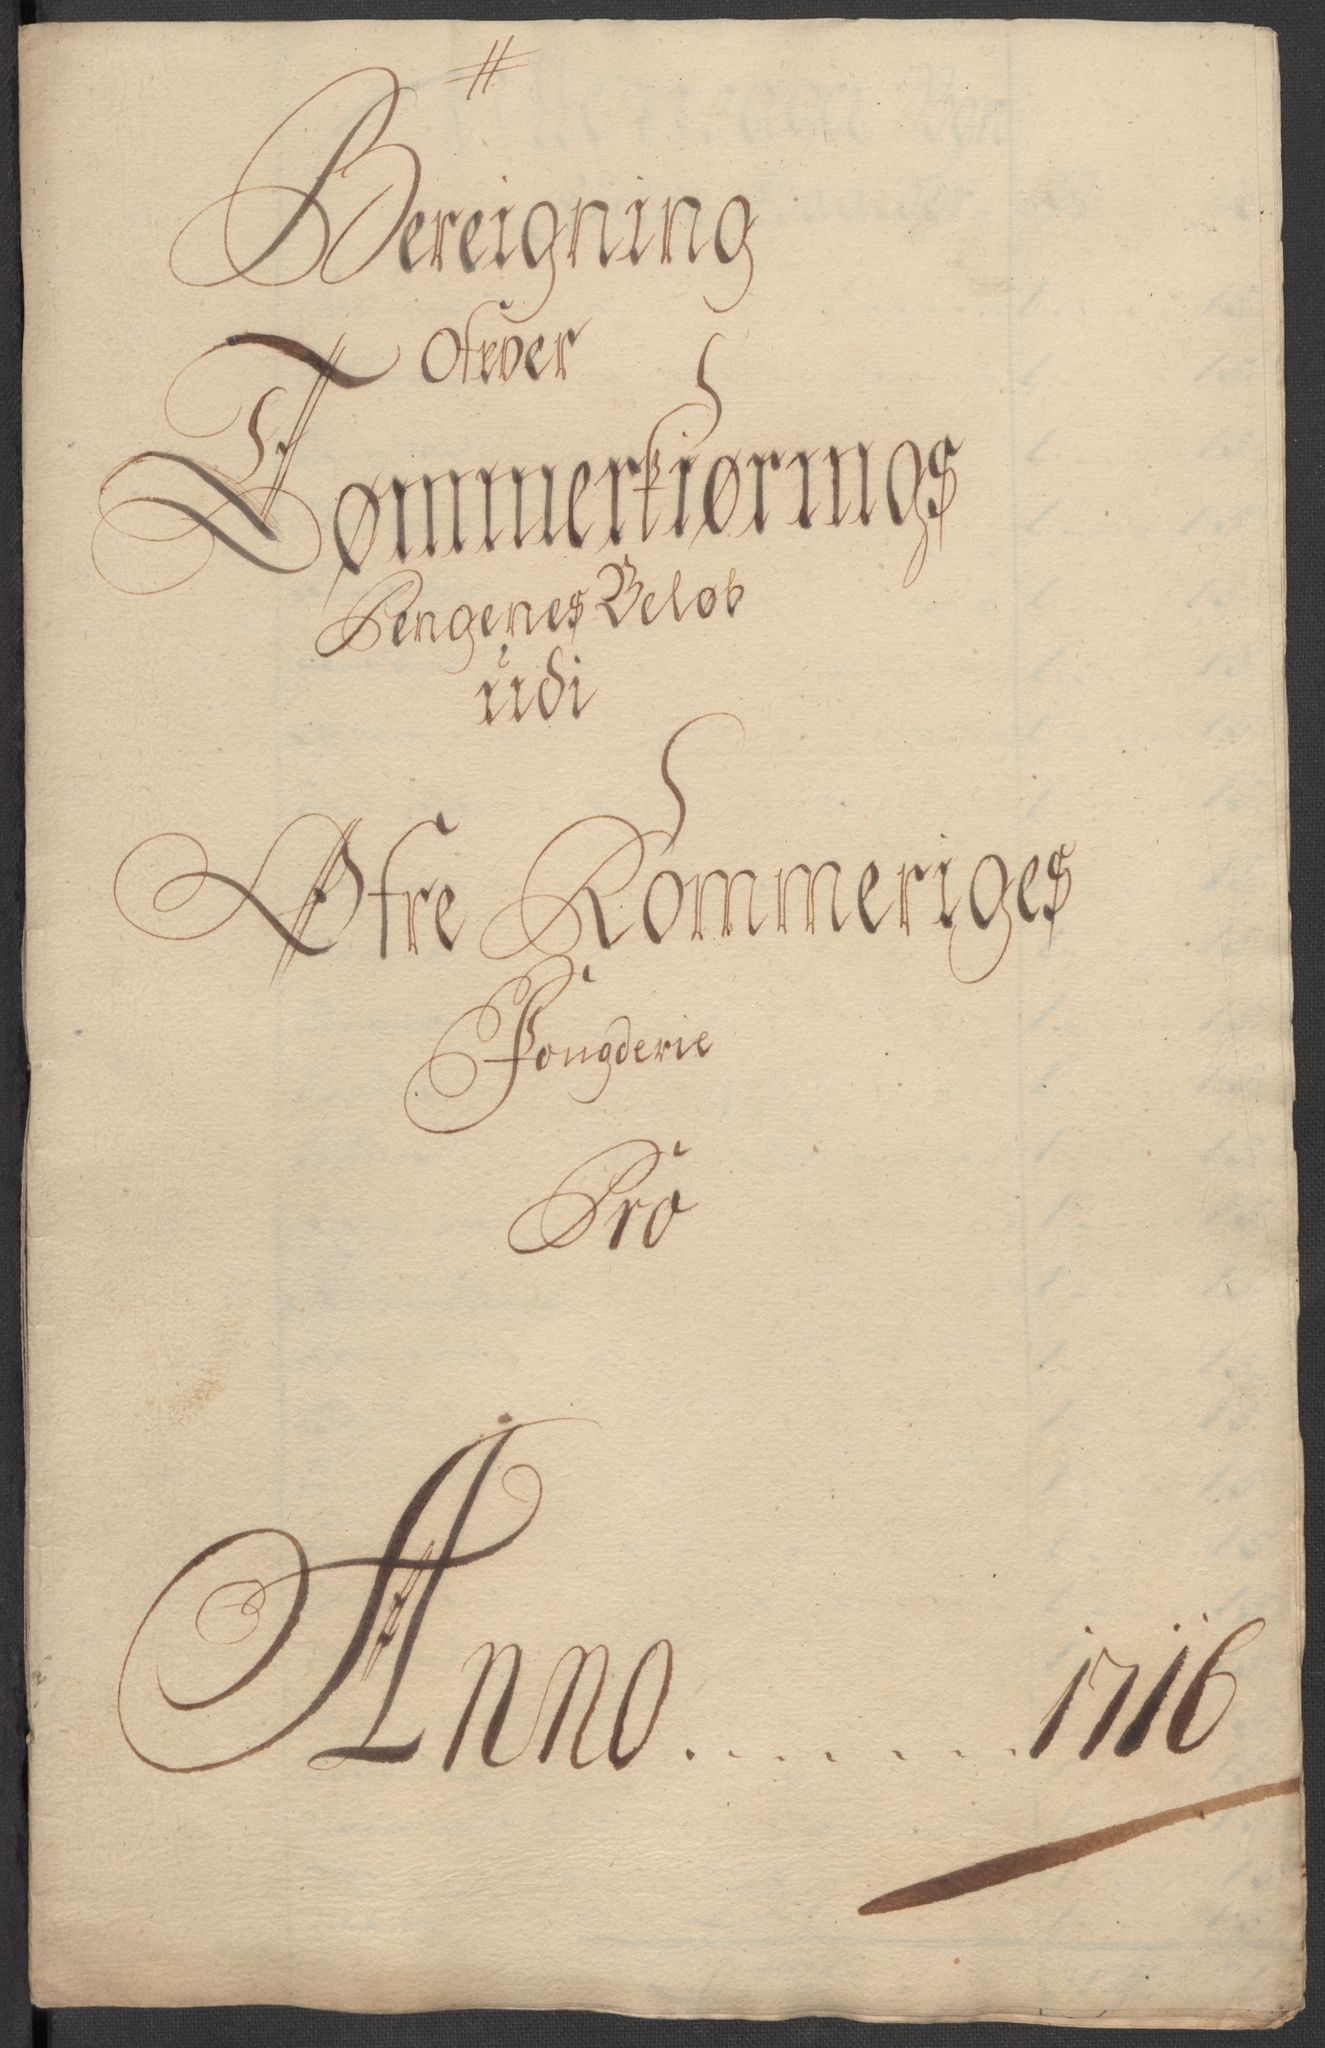 Bereigning
Ofver
Tømmerkiørings
Pengenes Beløb
udi
Øfre Rommeriges
Fougderie
Pro
Anno. . . . . . . 1716